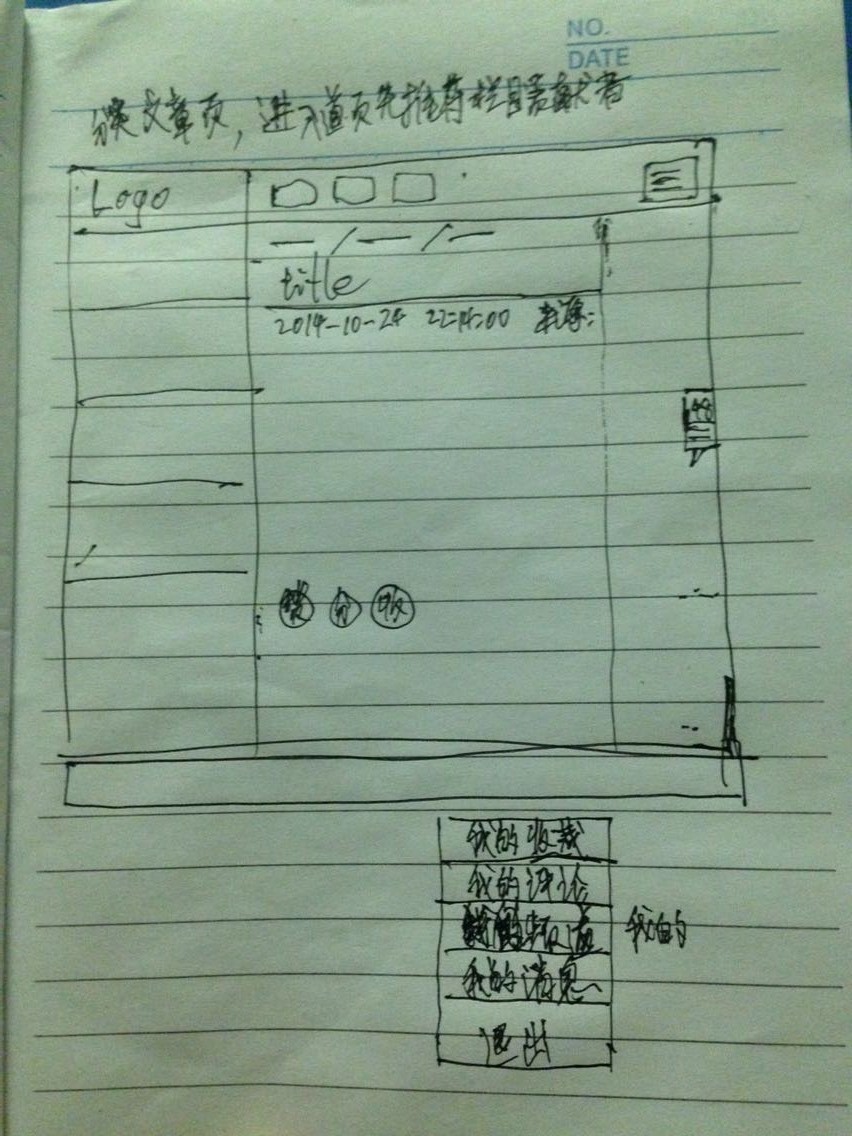 NO.
DATE
分类文章页，进入首页先推荐栏目贡献者
Logo
title
2014-10-24 22:14:00 来源：
48
赞 分 收
我的收藏
我的评论
频道 我的
我的消息
退出